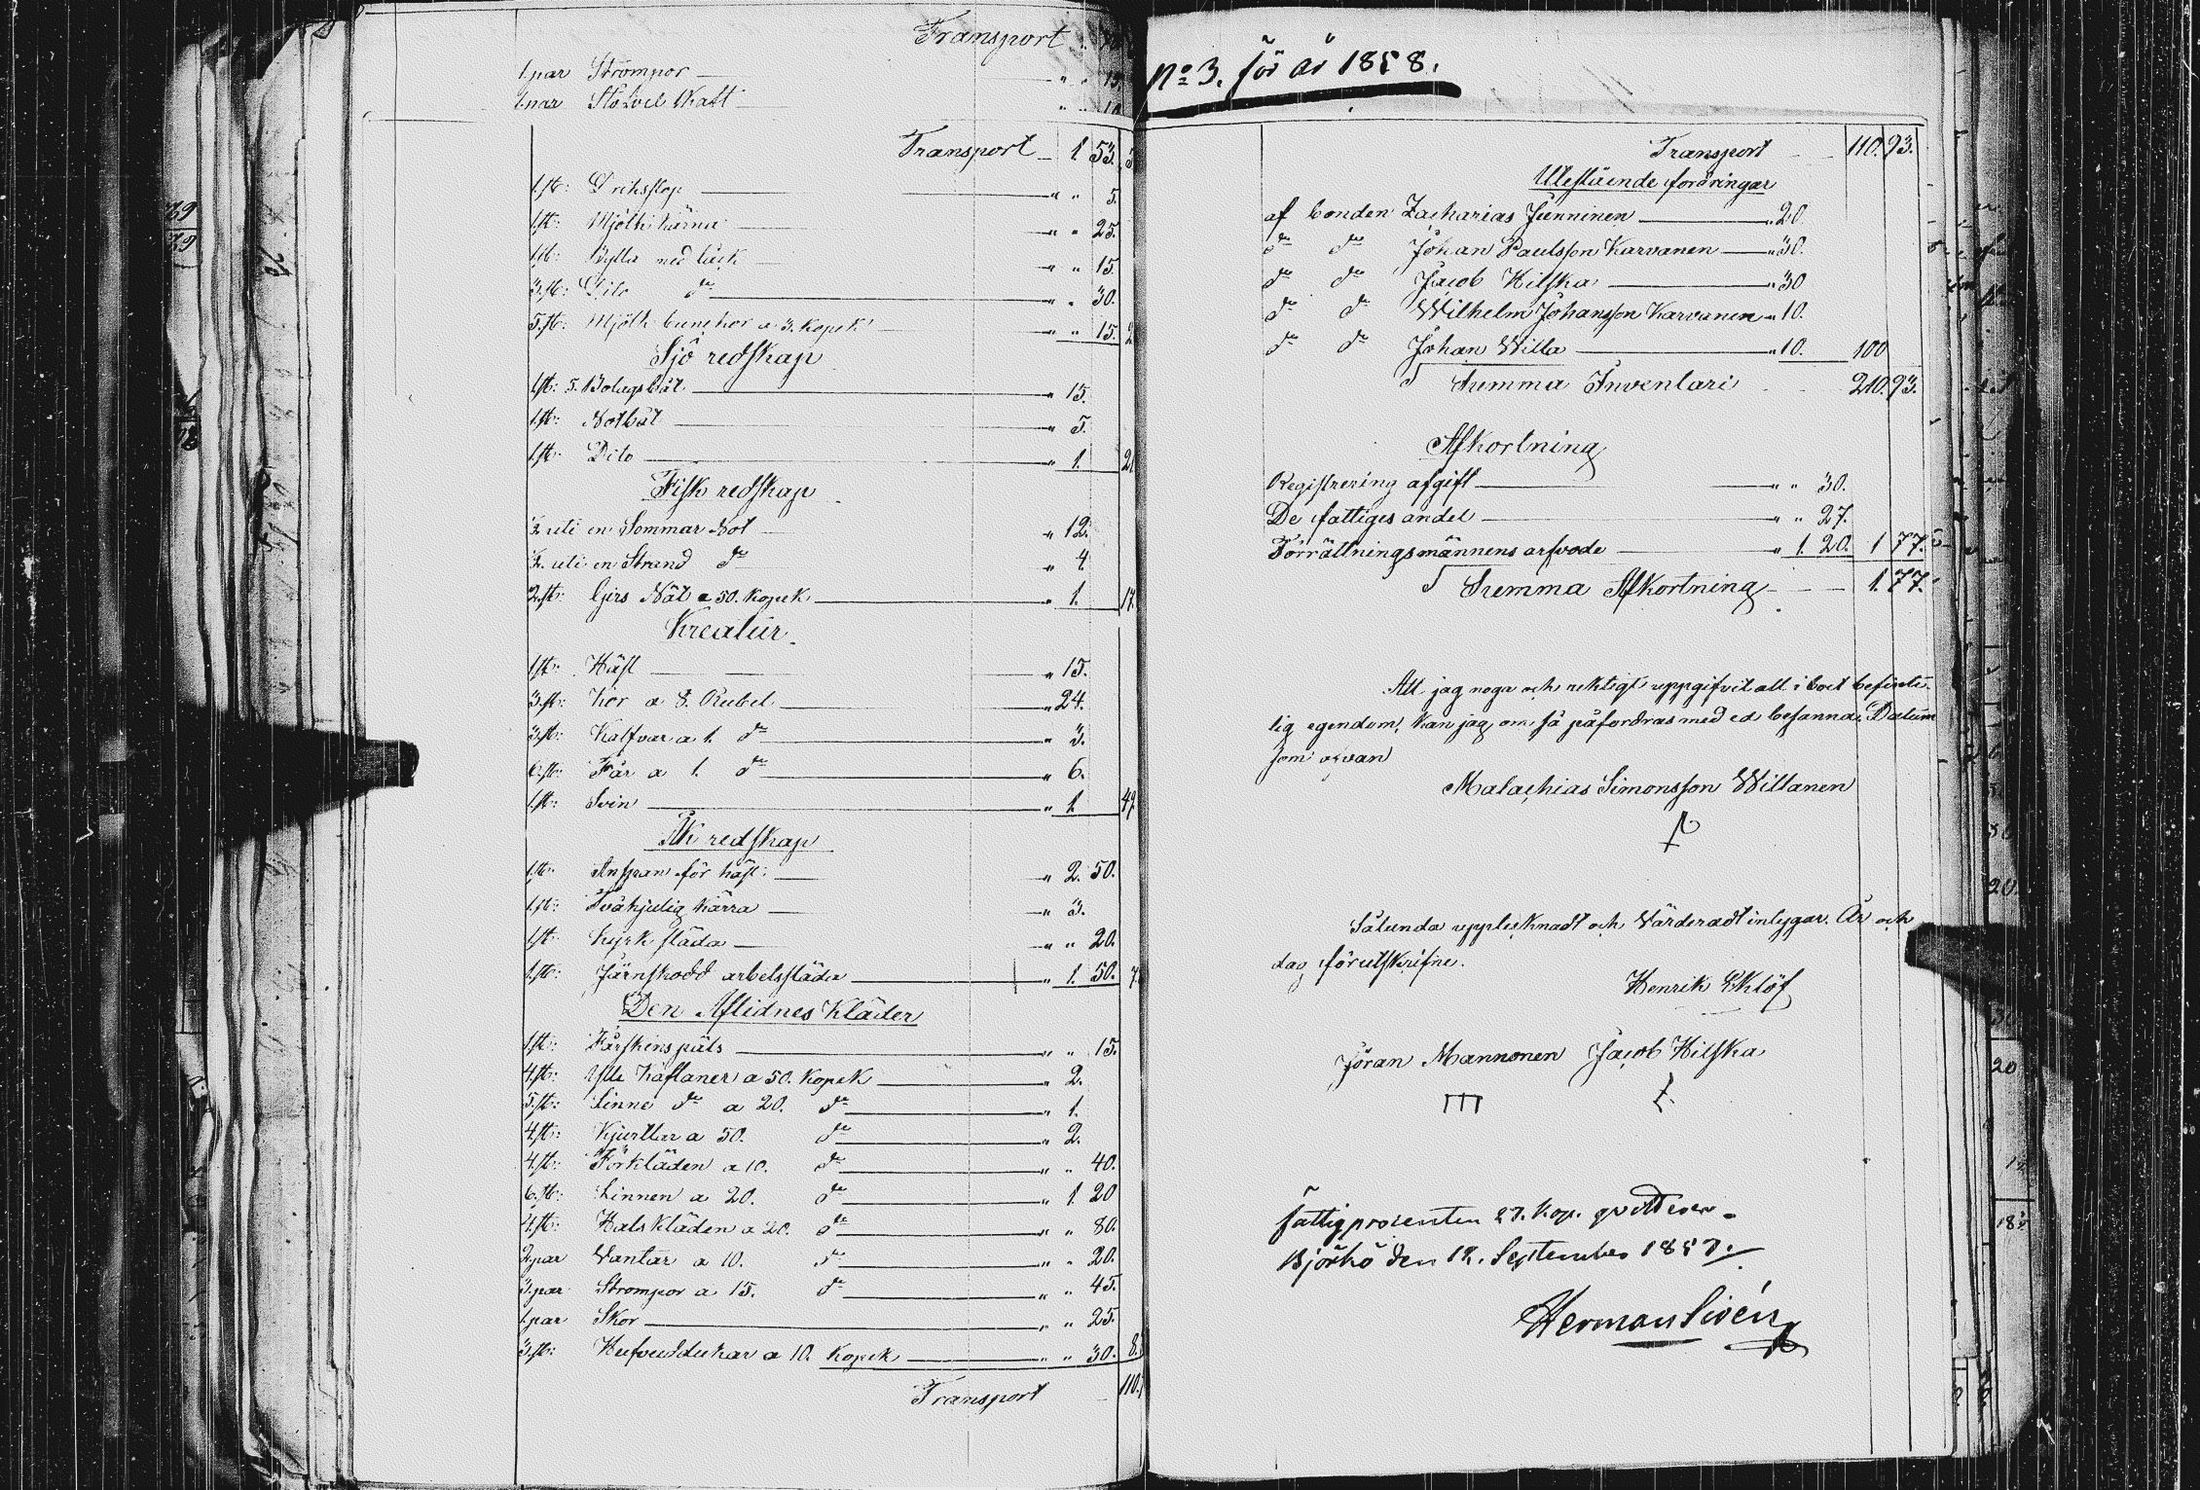 Transport
1.par Strömpor — " " 15
1.par Stöfvel Skaft — " " 10
Transport — 1. 53.
1.st: Drikstop — " " 5.
1.st: Mjölk kärna — " " 25.
1.st: Bytta med låck — " " 15.
3.st: Dito do — " " 30.
5.st: Mjölk bunckor a 3. Kopek — " " 15.
Sjö redskap
1.st: 5. Bolagsbåt — " 15.
1.st: Notbåt — " 5.
1.st: Dito — " 1. 21
Fisk redskap
½ uti en Sommar Not — " 12.
½ uti en Strand do — " 4.
2.st: Gjers Nät a 50. Kopek — " 1. 17.
Kreatur
1.st: Häst — " 15.
3.st: Kor a 8. Rubel — " 24.
3.st: Kalfvar a 1. do — " 3.
6.st: Får a 1. do — " 6.
1.st: Svin — " 1. 49
Åk redskap
1.st: Anspan för häst — " 2. 50.
1.st: Tvåhjulig kärra — " 3.
1.st: Kyrk släda — " " 20.
1.st: Järnskodd arbetssläda — " 1. 50. 7.
Den Aflidnes Kläder
1.st: Fårskinspäls — " " 15.
4.st: Ylle Kaftaner a 50. Kopek — " 2.
5.st: Linne do a 20. do — " 1.
4.st: Kjortlar a 50. do — " 2.
4.st: Förkläden a 10. do — " " 40.
6.st: Linnen a 20. do — " 1. 20
4.st: Halskläden a 20. do — " " 80.
2.par Vantar a 10. do — " " 20.
3.par Strömpor a 15. do — " " 45.
1.par Skor — " " 25.
3.st: Hufvuddukar a 10. Kopek — " " 30. 8.
Transport 110.
No 3. för år 1858.
Transport — 110. 93.
Utestående fordringar
af bonden Zacharias Junninen — " 20.
do do Johan Paulsson Karvanen — " 30.
do do Jacob Hilska — " 30
do do Wilhelm Johansson Karvanen " 10.
do do Johan Willa — " 10. 100
Summa Inventari 210. 93.
Afkortning
Registrering afgift — " " 30.
De fattiges andel — " " 27.
Förrättningsmännens arfvode — " 1. 20. 1 77.
Summa Afkortning — 1. 77.
Att jag noga och riktigt uppgifvit all i boet befint-
lig egendom, kan jag om så påfordras med ed besanna. Datum
som ofvan
Malachias Simonsson Willanen
Sålunda upptecknadt och Värderadt intygar. År och
dag förutskrifne.
Henrik Eklöf
Jöran Mannonen Jacob Hilska
Fattigprocenten 27. Kop. qvitteras.
Björkö den 12. September 1857.
Herman Sirén